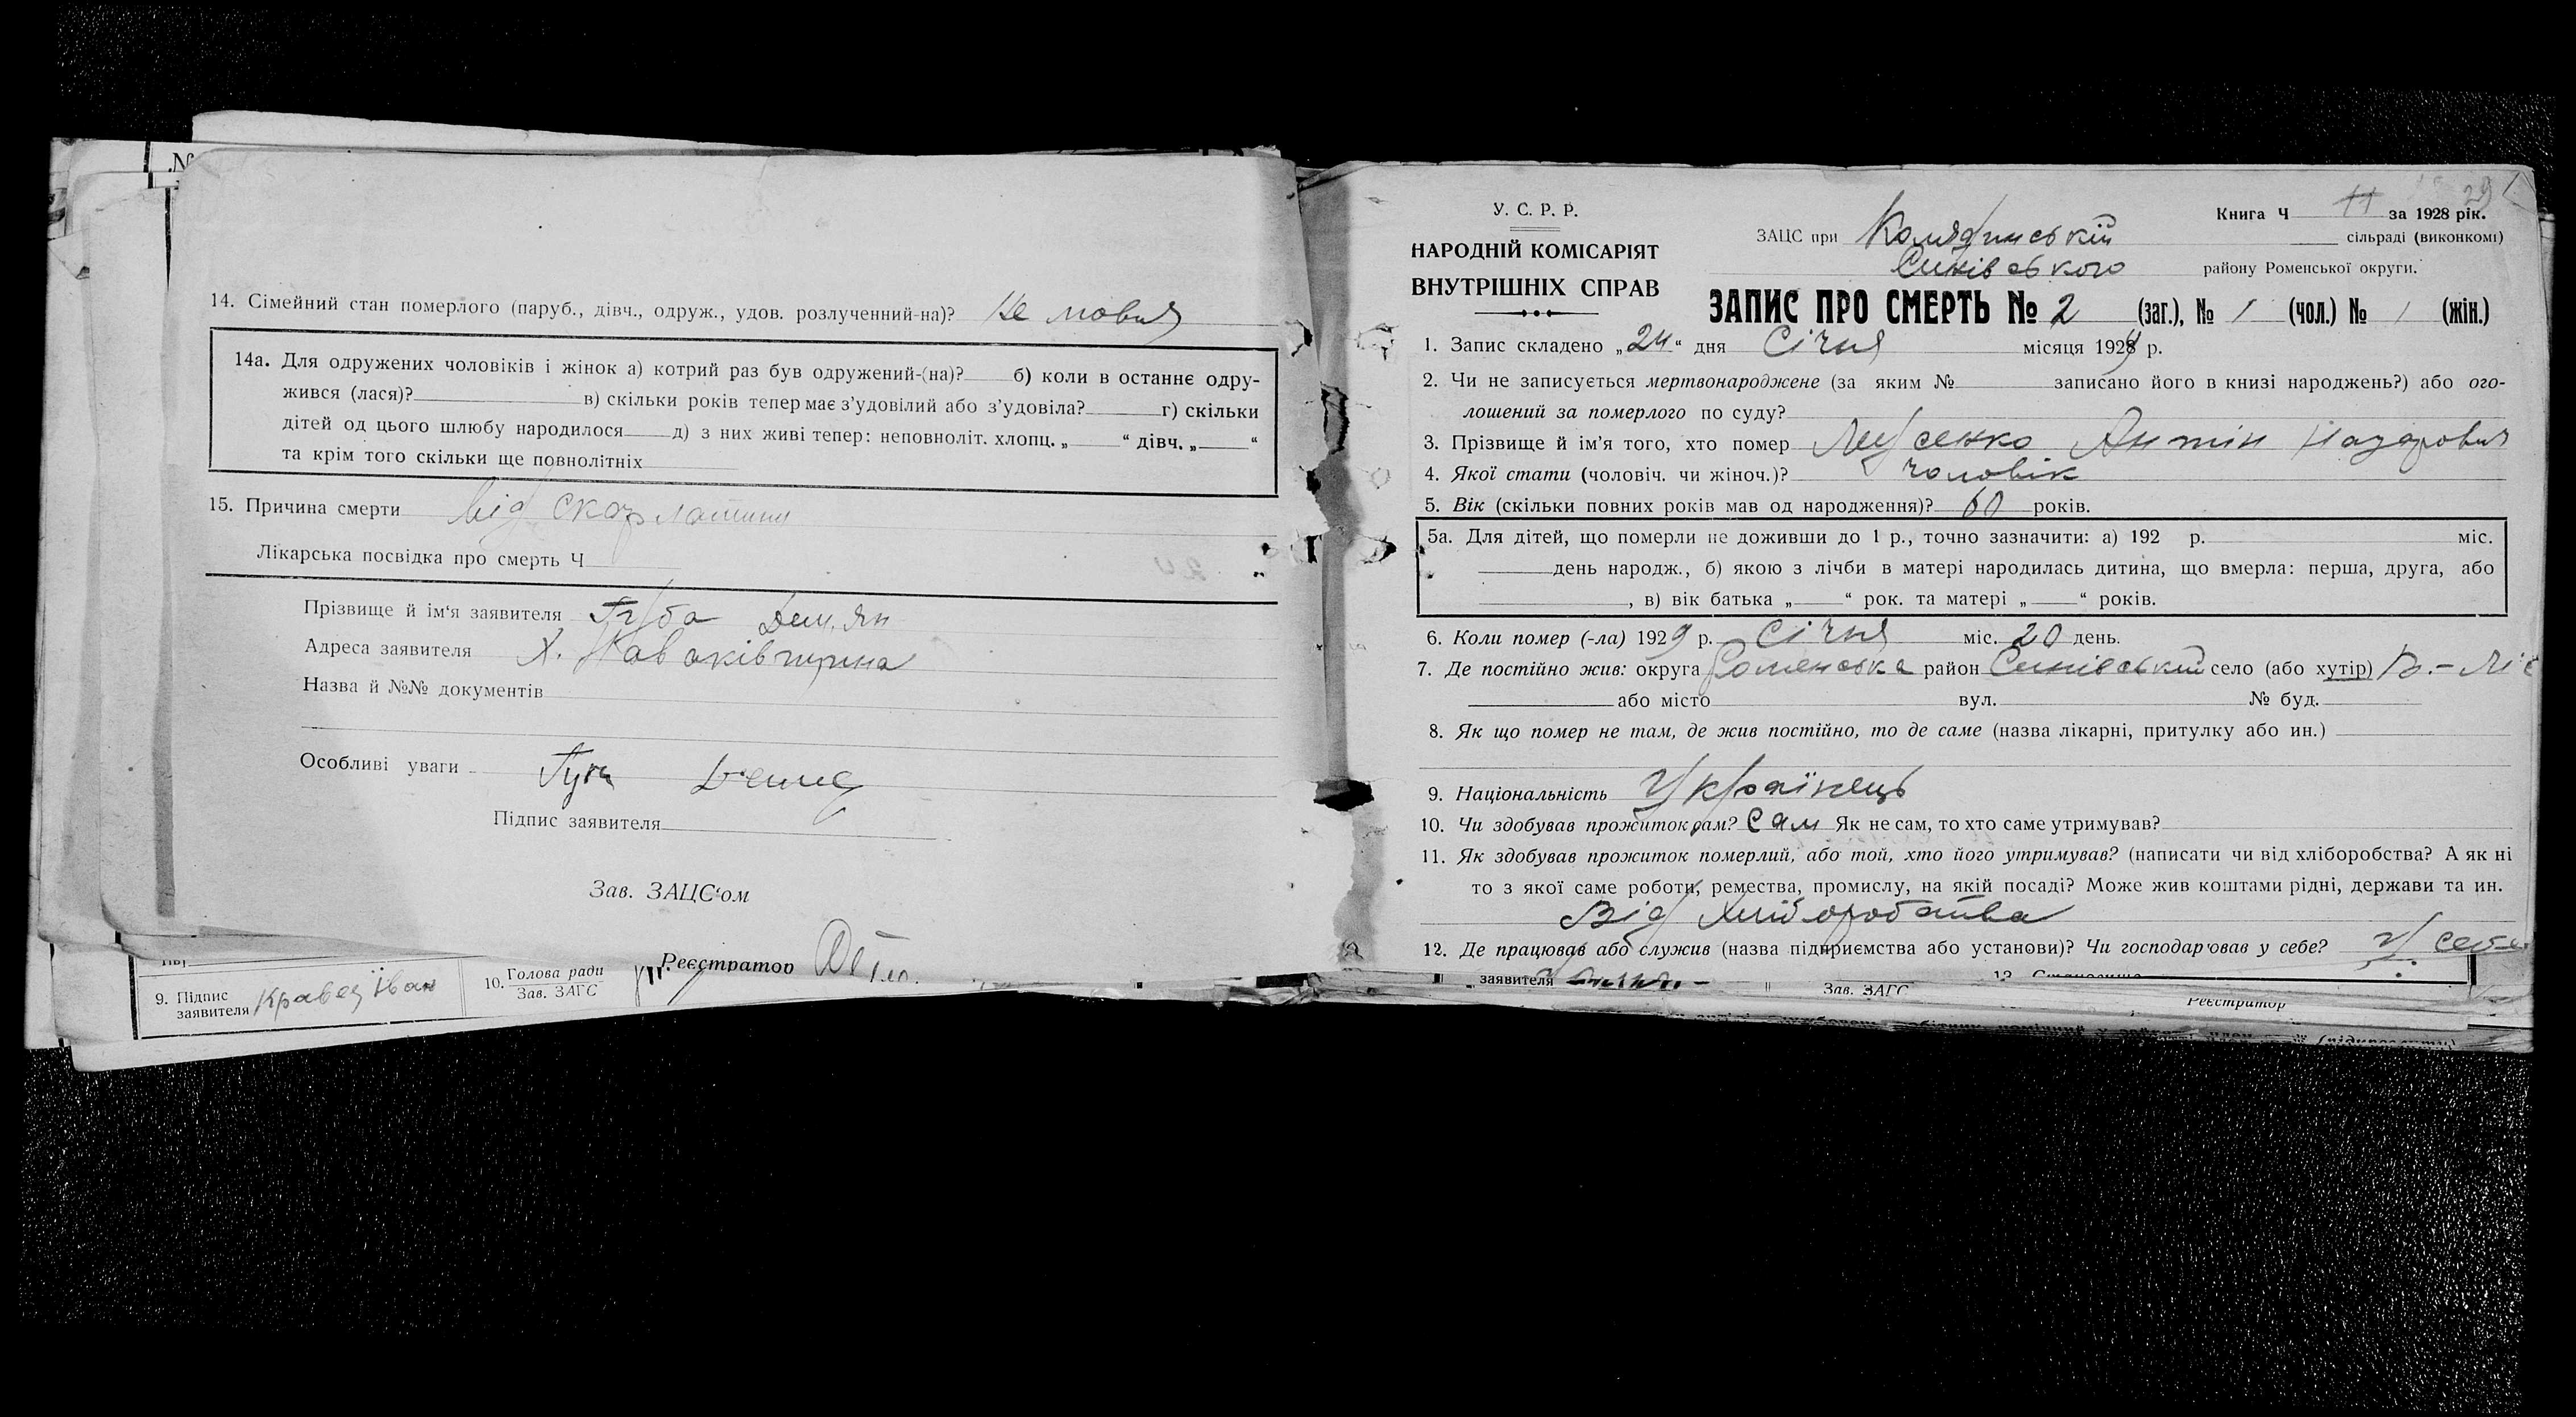 №
14. Сімейний стан померлого (паруб., дівч., одруж., удов. розлученний-на)? Не мовля
14а. Для одружених чоловіків і жінок а) котрий раз був одружений-(на)? б) коли в останнє одру-
жився (лася)? в) скільки років тепер має з’удовілий або з’удовіла? г) скільки
дітей од цього шлюбу народилося д) з них живі тепер: неповноліт. хлопц. „ “ дівч. „ “
та крім того скільки ще повнолітніх
15. Причина смерти від скарлатини
Лікарська посвідка про смерть Ч
Прізвище й ім‘я заявителя Губа Демян
Адреса заявителя Х.
Назва й №№ документів
Особливі уваги Губа
Підпис заявителя
Зав. ЗАЦС‘ом
Реєстратор
9. Підпис заявителя Кравец Іван
10. Голова ради
Зав. ЗАГС
У. С. Р. Р.
НАРОДНІЙ КОМІСАРІЯТ
ВНУТРІШНІХ СПРАВ
Книга Ч 11 за 1928 рік.
29
ЗАЦС при Колядинській сільраді (виконкомі)
Синівського району Роменської округи.
ЗАПИС ПРО СМЕРТЬ № 2 (заг.), № 1 (чол.) № / (жін.)
1. Запис складено „24“ дня Січня місяця 1929 р.
2. Чи не записується мертвонароджене (за яким № записано його в книзі народжень?) або ого-
лошений за померлого по суду?
3. Прізвище й ім’я того, хто помер Антін Назарович
4. Якої стати (чоловіч. чи жіноч.)? чоловік
5. Вік (скільки повних років мав од народження)? 60 років.
5а. Для дітей, що померли не доживши до 1 р., точно зазначити: а) 192 р. міс.
день народж., б) якою з лічби в матері народилась дитина, що вмерла: перша, друга, або
, в) вік батька „ “ рок. та матері „ “ років.
6. Коли помер (-ла) 1929 р. Січня міс. 20 день.
7. Де постійно жив: округа Роменська район Синівський село (або хутір)
або місто вул. № буд.
8. Як що помер не там, де жив постійно, то де саме (назва лікарні, притулку або ин.)
9. Національність Українець
10. Чи здобував прожиток сам? Сам Як не сам, то хто саме утримував?
11. Як здобував прожиток померлий, або той, хто його утримував? (написати чи від хліборобства? А як ні
то з якої саме роботи, ремества, промислу, на якій посаді? Може жив коштами рідні, держави та ин.
Від хліборобства
12. Де працював або служив (назва підприємства або установи)? Чи господар‘овав у себе? У себе
заявителя
Зав. ЗАГС
Реєстратор